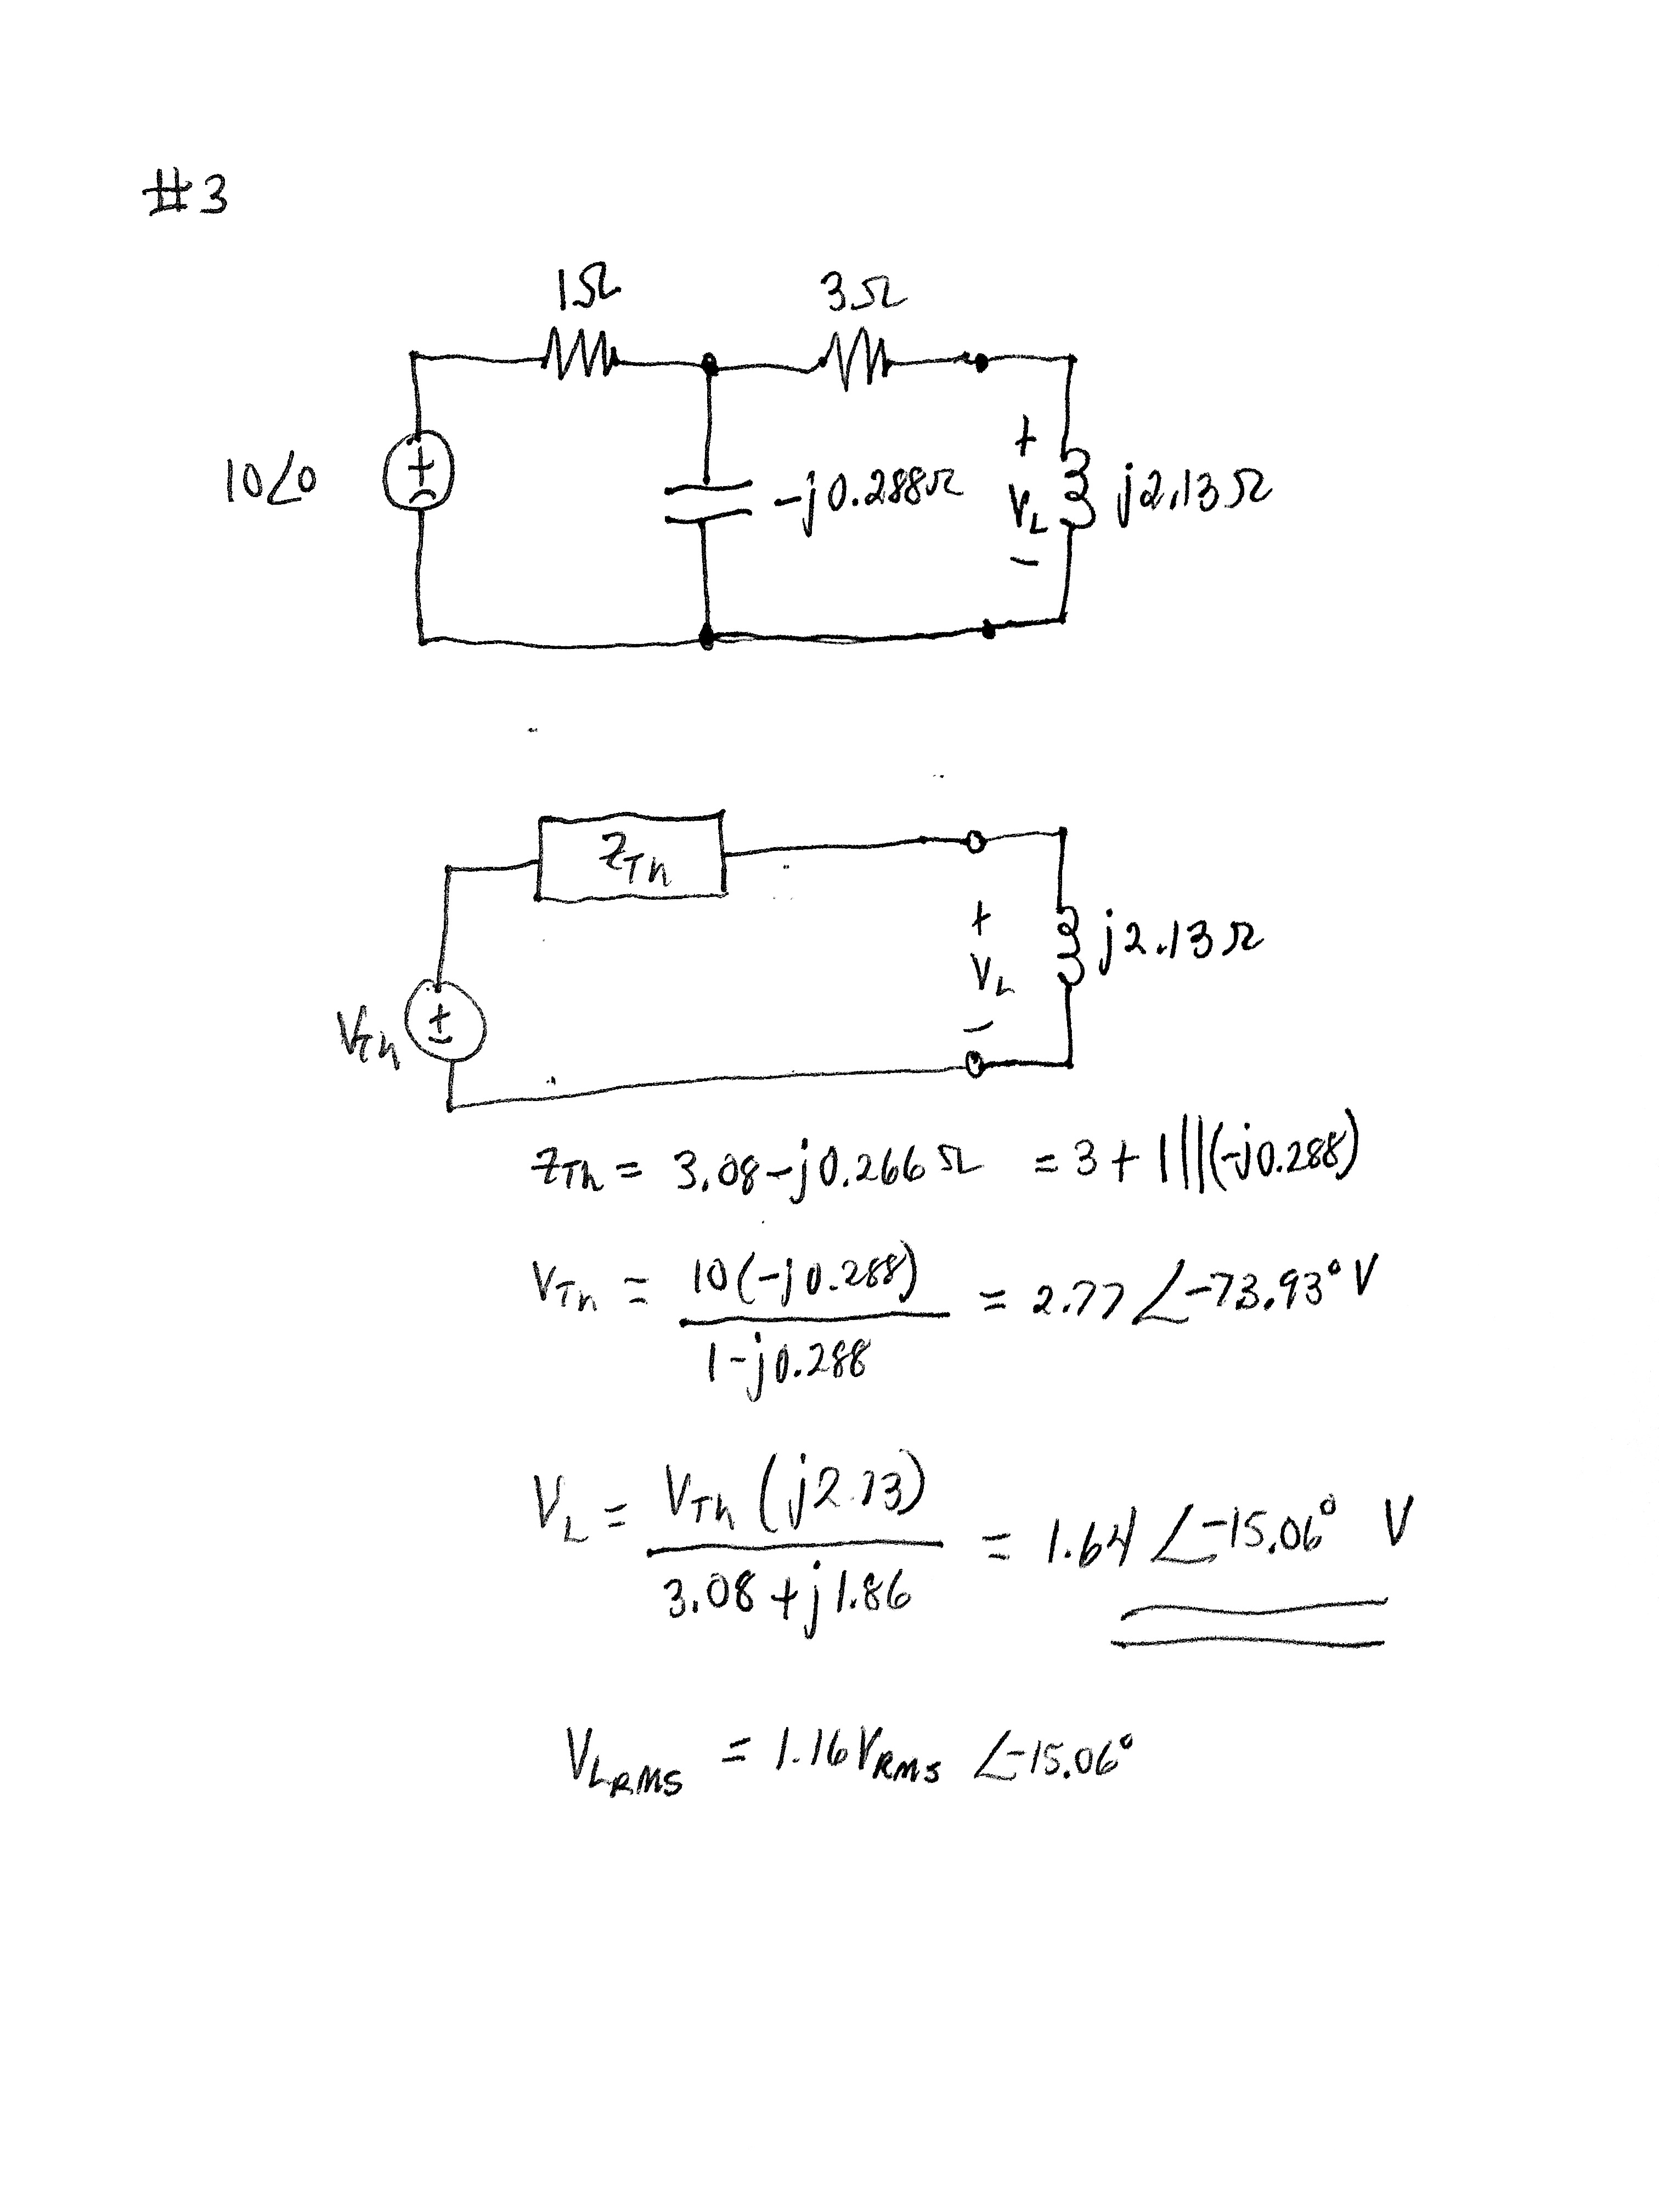 #3
1Ω 3Ω
10∠0 + -j0.288Ω + V_L - j2.13Ω
Z_Th
V_Th ± + V_L - j2.13Ω
Z_Th = 3.08-j0.266 Ω = 3 + 1||(-j0.288)
V_Th = 10(-j0.288) / 1-j0.288 = 2.77 ∠-73.93° V
V_L = V_Th (j2.13) / 3.08 + j1.86 = 1.64 ∠-15.06° V
V_LRMS = 1.16 V_RMS ∠-15.06°